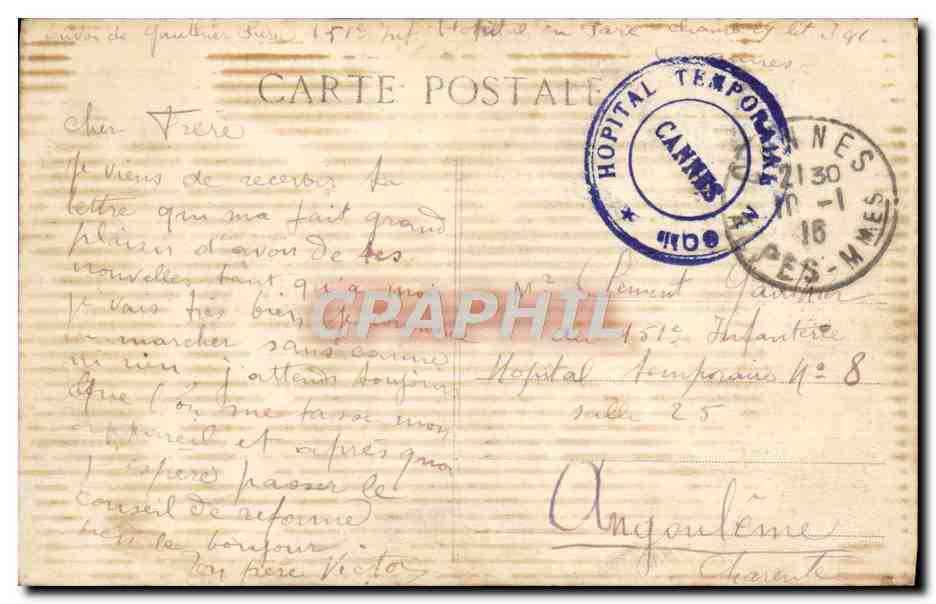 envoi de Gauthier 151e Inf Hopital
CARTE POSTALE
HOPITAL TEMPORAIRE N
CANNES
CANNES
21 30
-1
16
ALPES-MMES
cher Frère
je viens de recevoir ta
lettre qui ma fait grand
plaisir d'avoir de tes
nouvelles tant qu'a moi
je vais très bien je
marcher sans canne
ni rien j'attends toujours
Que l'on me fasse mon
appareil et après quoi
j'espère passer le
conseil de reforme
le bonjour
Ton frère Victor
Mr Clement Gauthier
du 151e Infanterie
Hopital temporaire No 8
salle 25
Angoulême
Charente
CPAPHIL